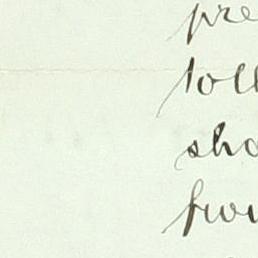 pre
foll
sho
fron